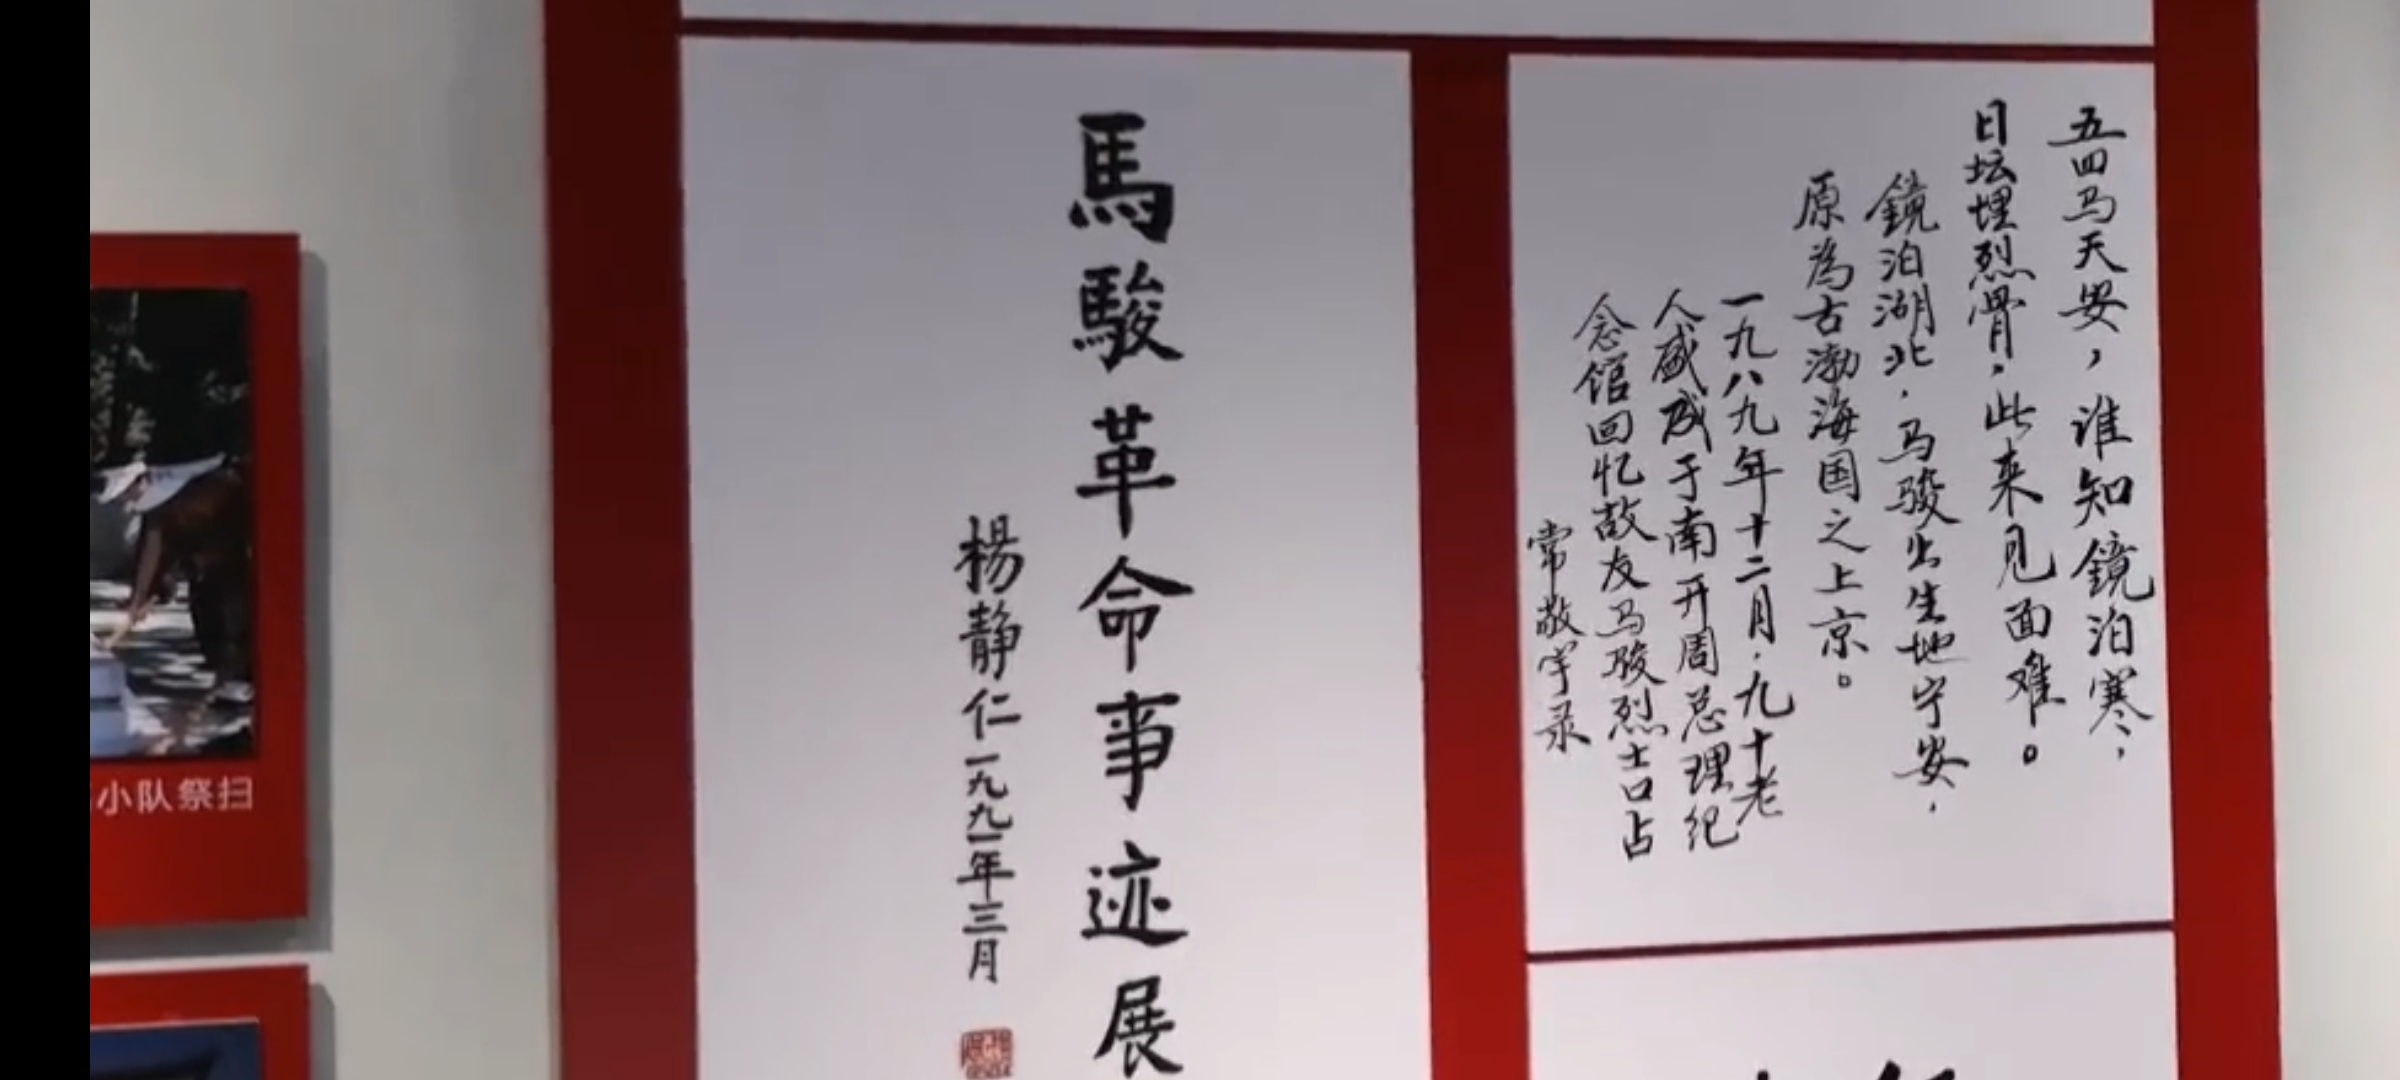 五四马天安，谁知鏡泊寒，
日坛埋烈骨，此来见面难。
鏡泊湖北，马骏出生地宁安，
原為古渤海国之上京。
一九八九年十二月，九十老
人盛成于南开周总理纪
念馆回忆故友马骏烈士口占
常敬宇录
馬駿革命事迹展
楊静仁一九九一年三月
小队祭扫